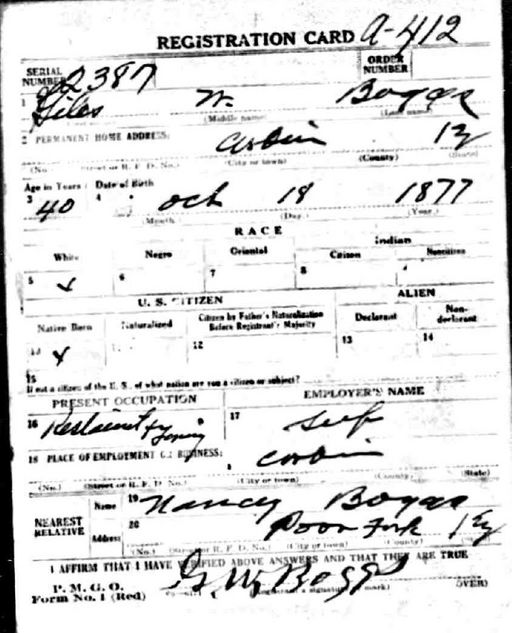 REGISTRATION CARD A-412
SERIAL NUMBER 2387 ORDER NUMBER
1 Giles W. Boggs
(Middle name) (Last name)
2 PERMANENT HOME ADDRESS: Corbin Ky
(No.) (Street or R. F. D. No.) (City or town) (County) (State)
Age in Years Date of Birth
3 40 4 Oct 18 1877
(Month.) (Day.) (Year.)
RACE
White Negro Oriental Indian
Citizen Noncitizen
5 ✓ 6 7 8
U. S. CITIZEN ALIEN
Native Born Naturalized Citizen by Father's Naturalization Before Registrant's Majority Declarant Non-declarant
10 ✓ 12 13 14
15
If not a citizen of the U. S., of what nation are you a citizen or subject?
PRESENT OCCUPATION EMPLOYER'S NAME
16 17 self
18 PLACE OF EMPLOYMENT OR BUSINESS: Corbin
(No.) (Street or R. F. D. No.) (City or town) (County) (State)
NEAREST RELATIVE Name 19 Nancy Boggs
Address 20 Poor Fork Ky
(No.) (Street or R. F. D. No.) (City or town) (County) (State)
I AFFIRM THAT I HAVE VERIFIED ABOVE ANSWERS AND THAT THEY ARE TRUE
P. M. G. O.
Form No. 1 (Red) G. W. Boggs
(Registrant's signature or mark) (OVER)